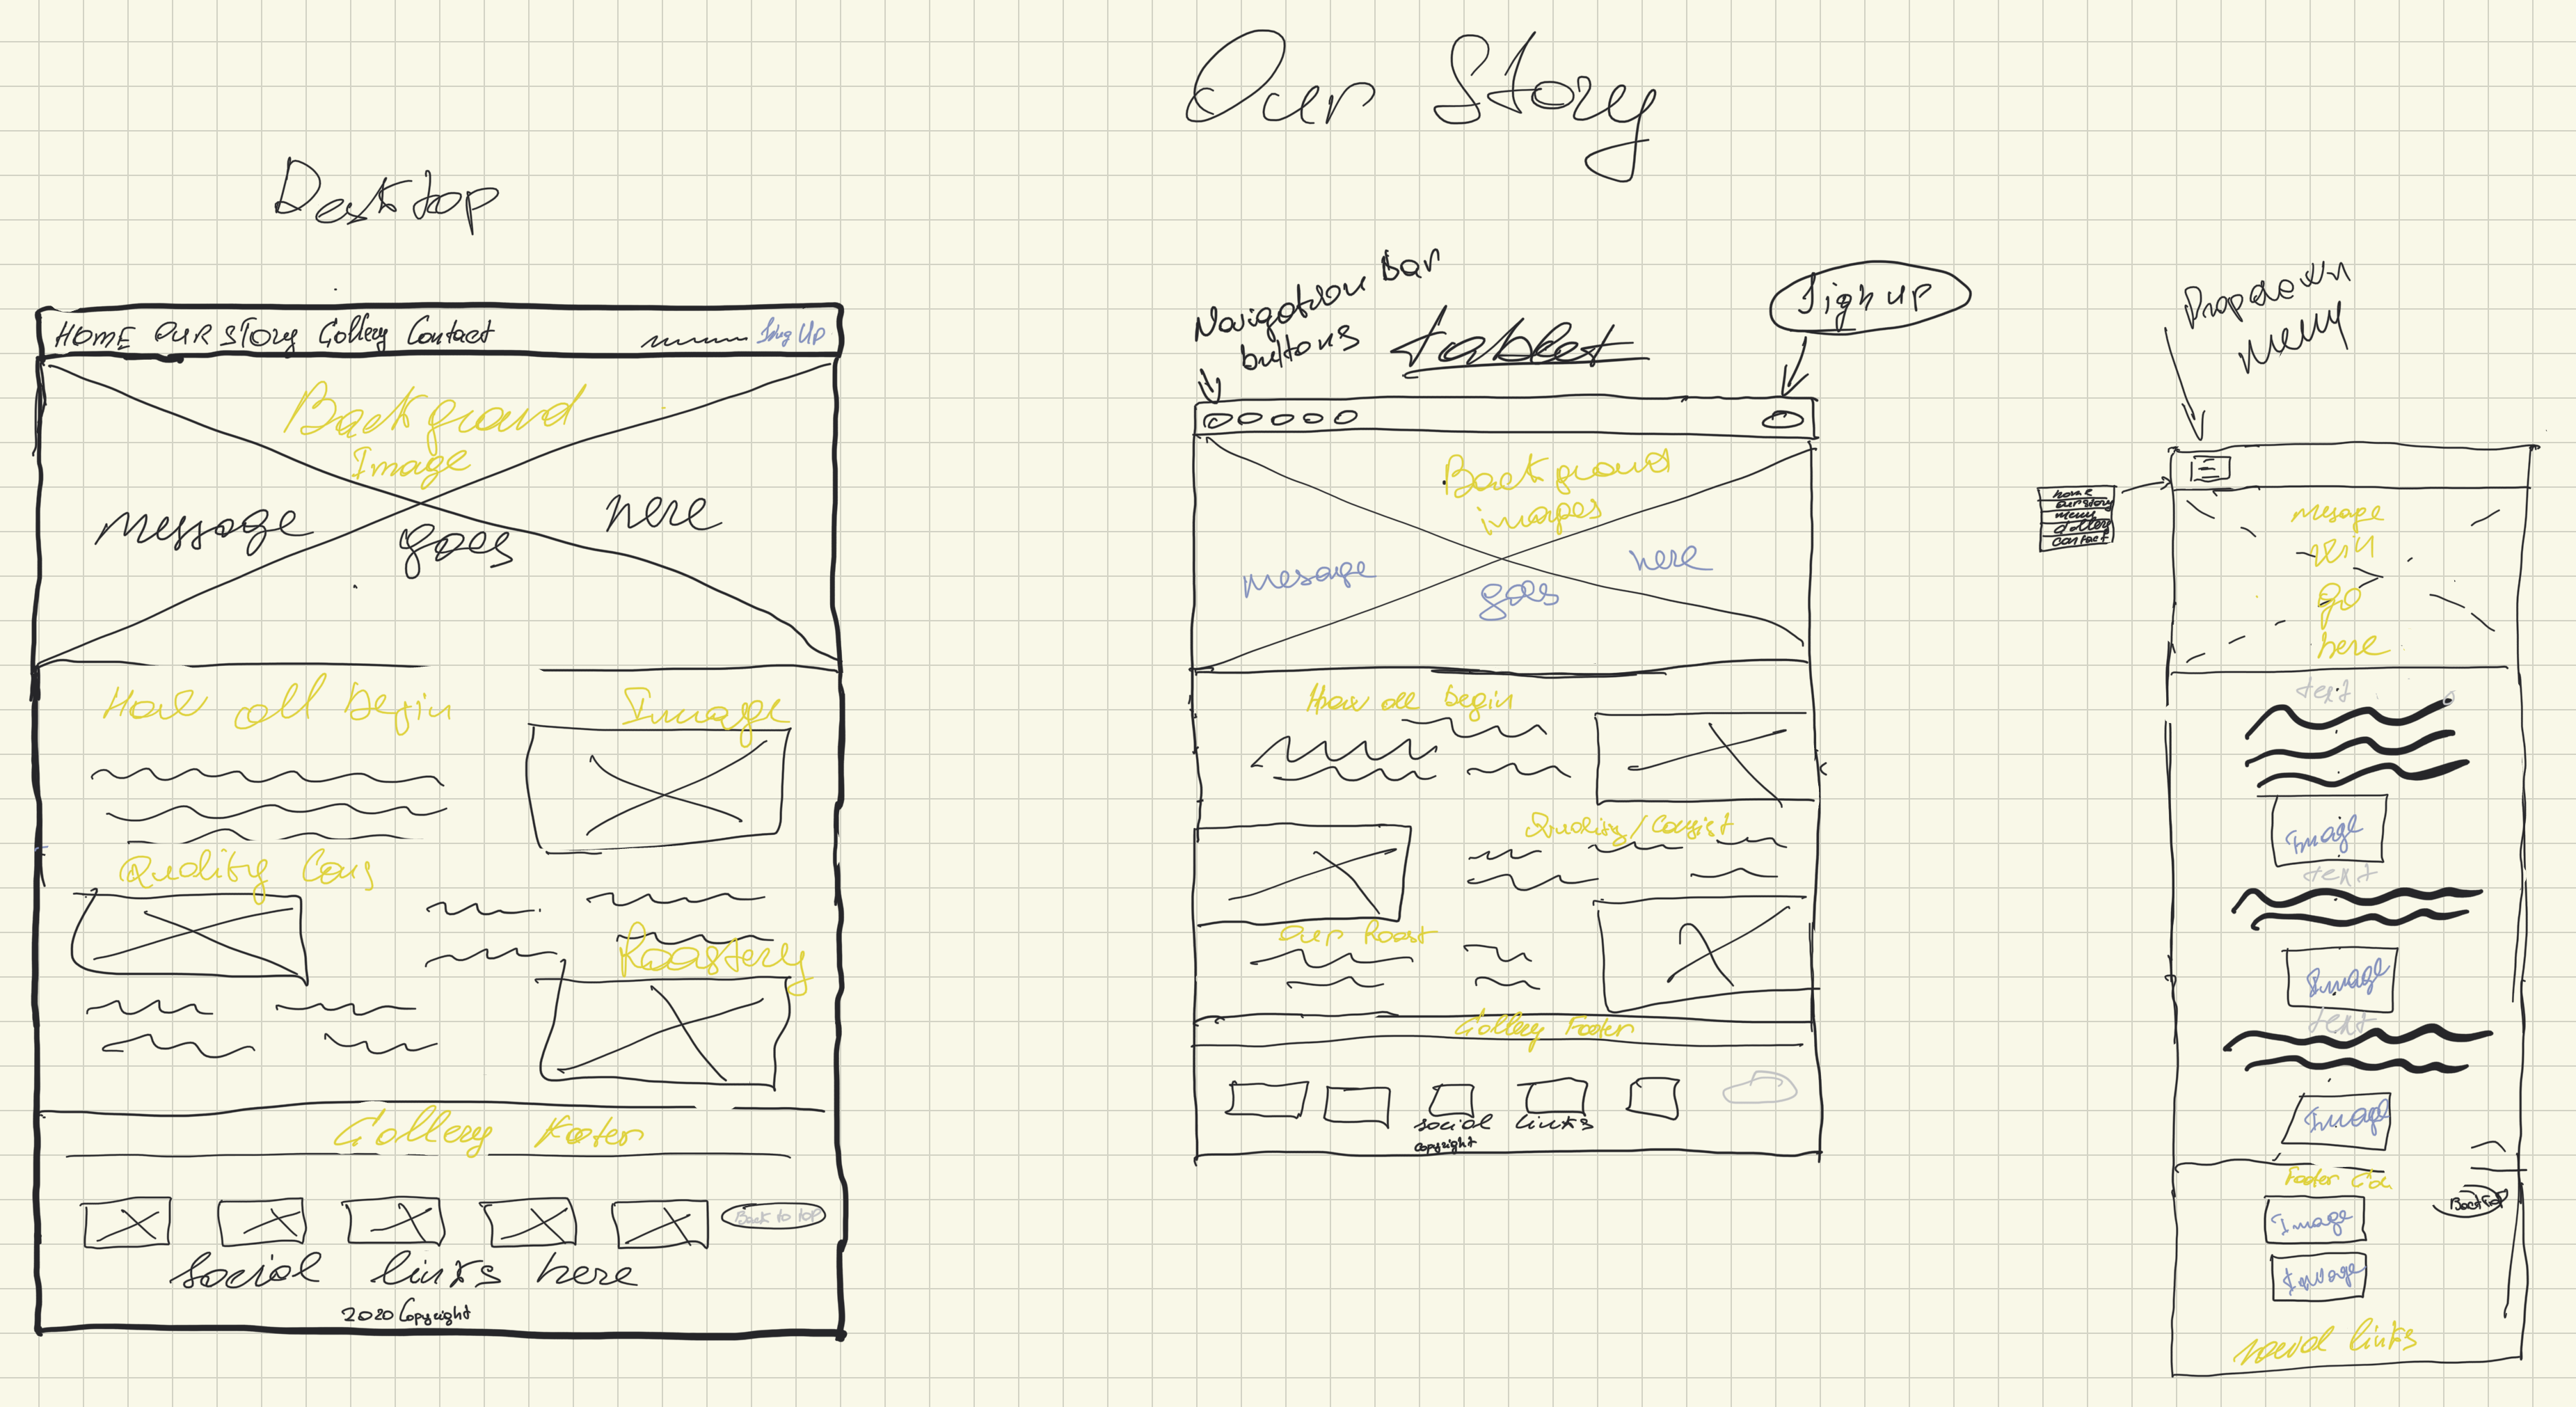 Our Story
Desktop
HOME OUR STORY Gollery Contact Sing Up
Background
Image
message goes here
How all begin
Image
Quality Cons
Roastery
Gollery Footer
Back to top
social links here
2020 Copyright
Navigation Bar
buttons
tablet
Sign up
Background
images
message goes here
How all begin
Quality/Consist
Our Roast
Gollery Footer
social links
Copyright
Dropdown
menu
home
our story
menu
Gollery
Contact
mesage
will
go
here
text
Image
text
Image
text
Image
Footer
Image
Image
social links